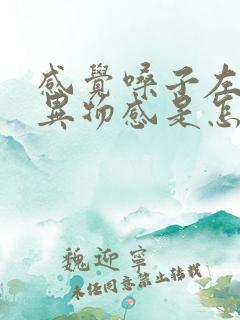 感覺嗓子左
異物感是怎
魏迎寧
未经同意禁止转载